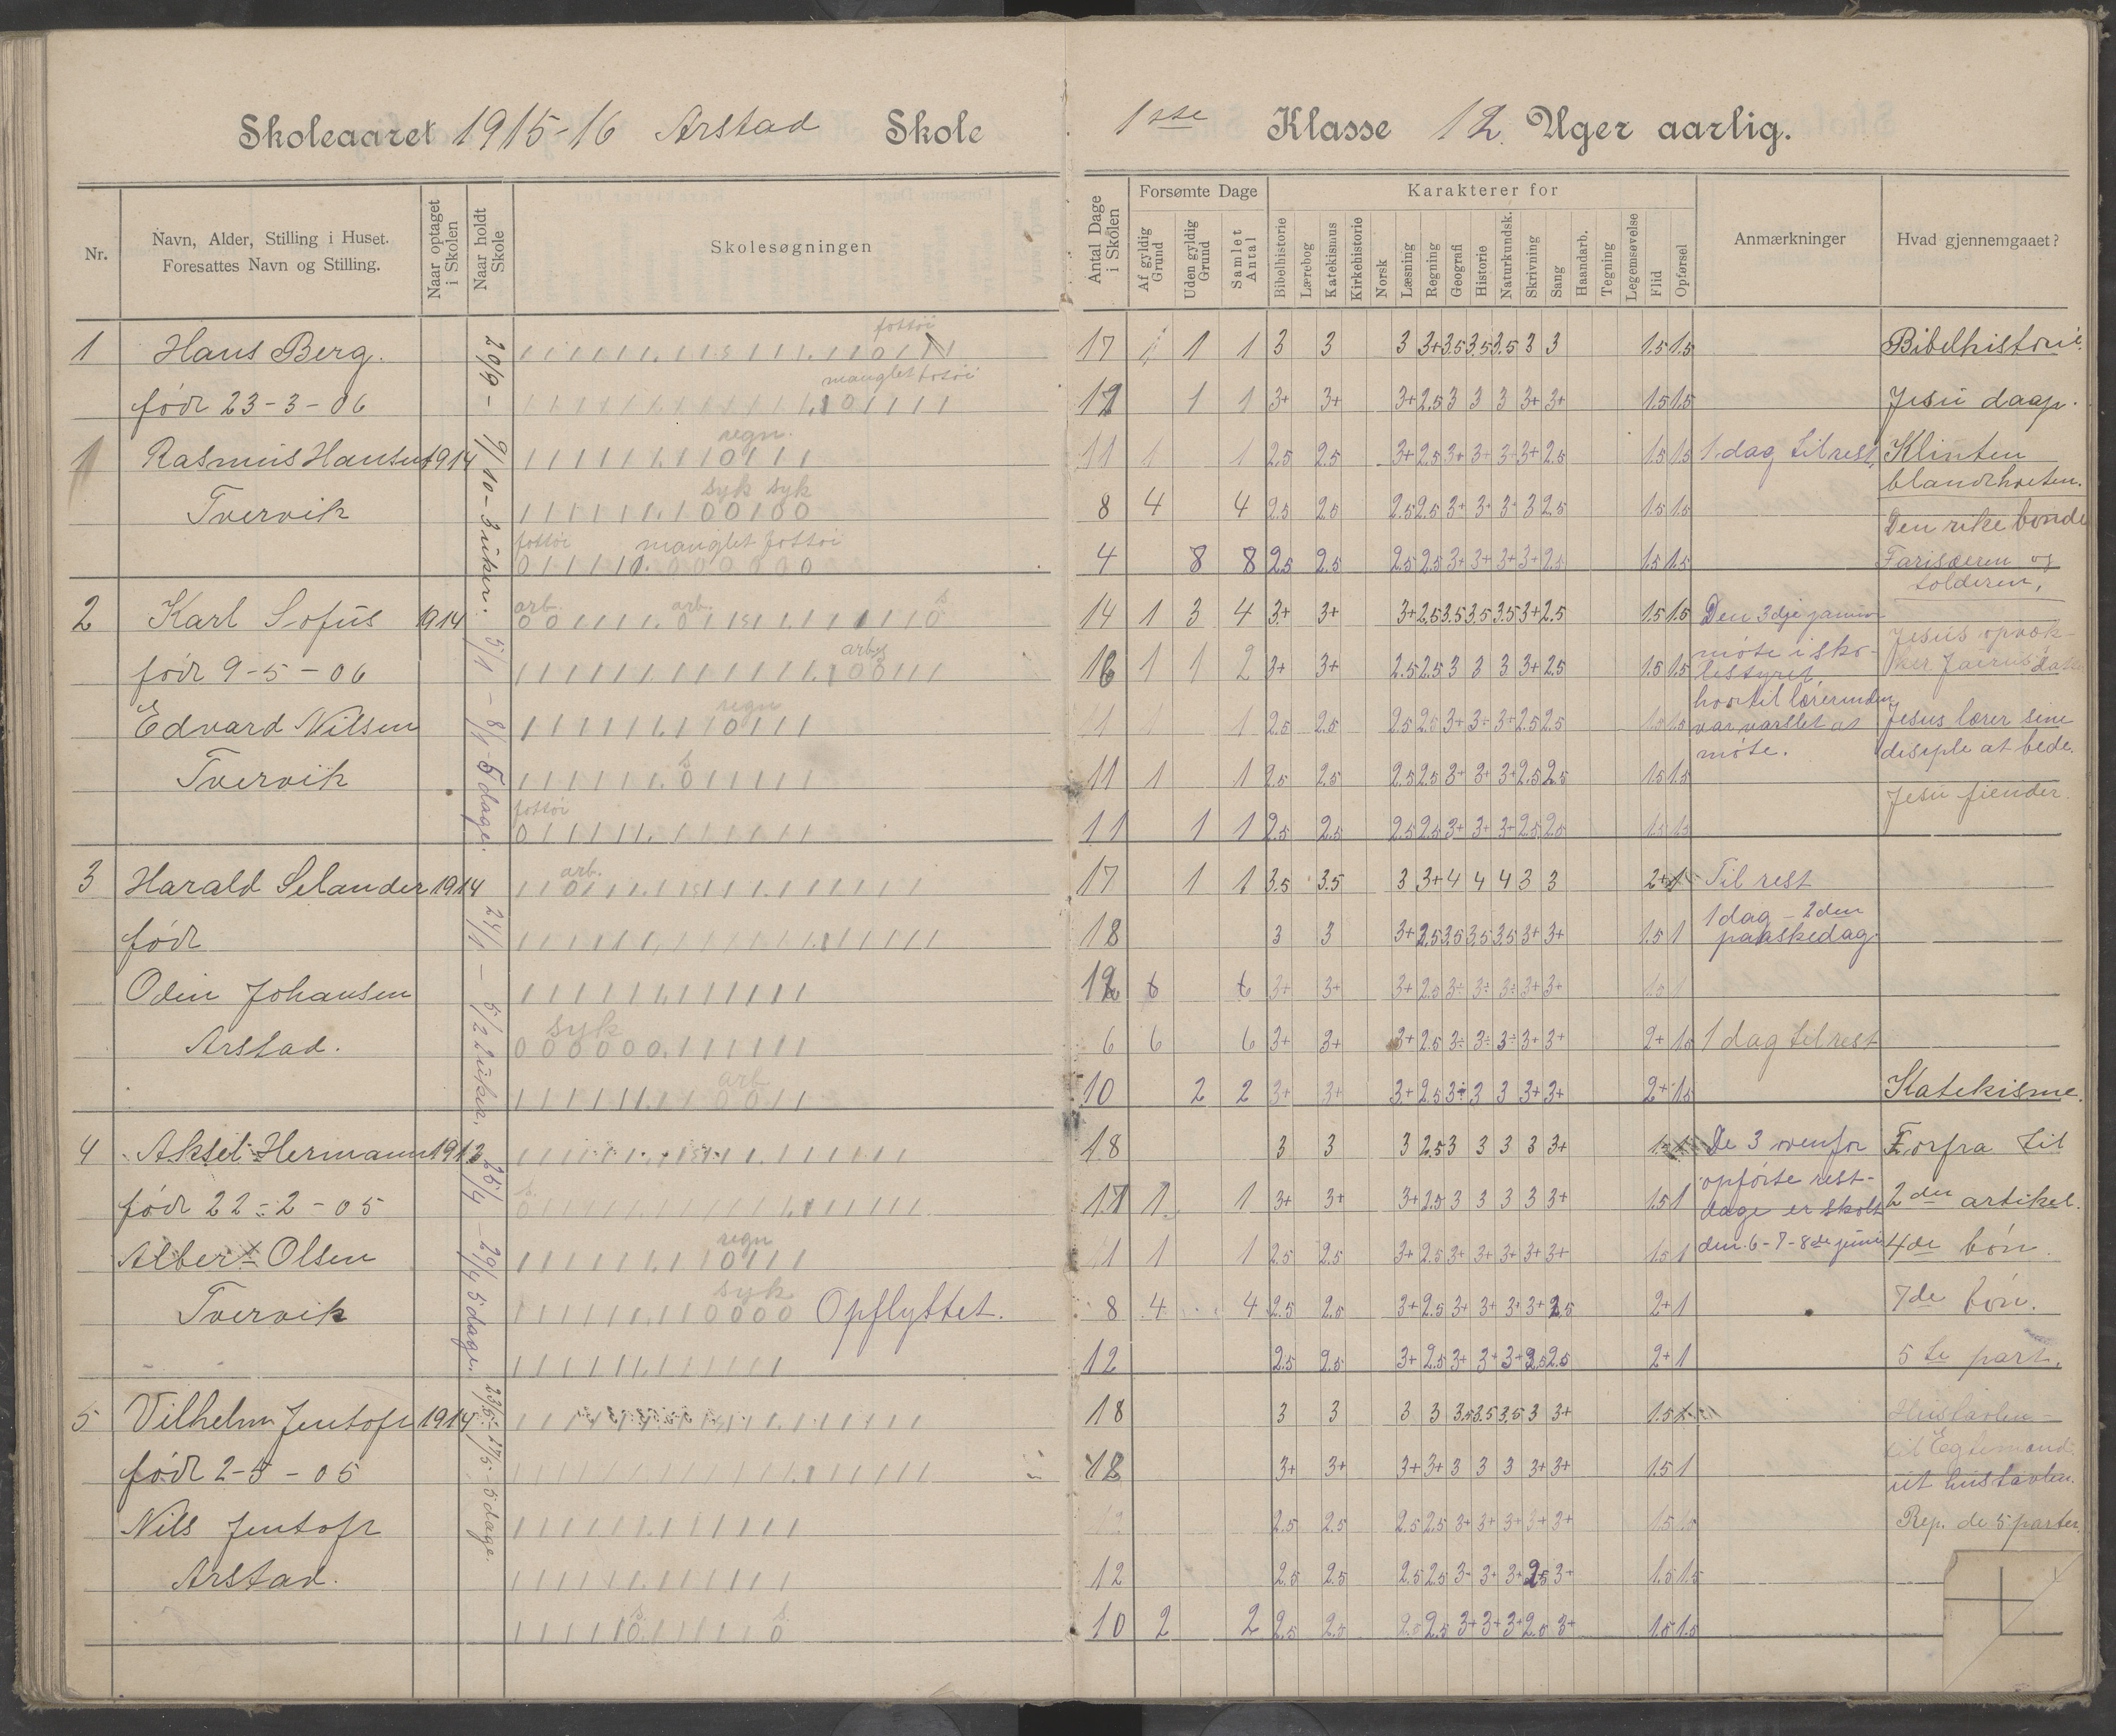 Skoleaaret 1915-16 Arstad Skole
1ste Klasse 12 Uger aarlig.
Nr.
Navn, Alder, Stilling i Huset.
Foresattes Navn og Stilling.
Naar optaget
i Skolen
Naar holdt
Skole
Skolesøgningen
Antal Dage
i Skolen
Forsømte Dage
Af gyldig
Grund
Uden gyldig
Grund
Samlet
Antal
Karakterer for
Bibelhistorie
Lærebog
Katekismus
Kirkehistorie
Norsk
Læsning
Regning
Geografi
Historie
Naturkundsk.
Skrivning
Sang
Haandarb.
Tegning
Legemsøvelse
Flid
Opførsel
Anmærkninger
Hvad gjennemgaaet?
20/9 - 9/10 - 3 uker.
5/1 - 8/1 5 dage.
24/1 - 5/2 2 uker.
25/4 - 29/4 5 dage.
23/5 - 27/5 - 5 dage.
fottøi
1 Hans Berg. 17 1 1 3 3 3 3+ 3.5 3.5 3.5 3 3 1.5 1.5 Bibelhistorie.
manglet fotøi
født 23-3-06 1 1 3+ 3+ 3+ 2.5 3 3 3 3+ 3+ 1.5 1.5 Jesu daap.
regn.
1 Rasmus Hansen 1914 11 1 1 2.5 2.5 3+ 2.5 3+ 3+ 3+ 3+ 2.5 1.5 1.5 1 dag til rest. Klinten
blandt hveten.
syk syk
Tvervik 8 4 4 2.5 2.5 2.5 2.5 3+ 3+ 3+ 3 2.5 1.5 1.5 Den rike bonde
fottøi manglet fottøi
4 8 8 2.5 2.5 2.5 2.5 3+ 3+ 3+ 3+ 2.5 1.5 1.5 Farisæeren og
tolderen.
arb. arb. s
2 Karl Sofus 1914 14 1 3 4 3+ 3+ 3+ 2.5 3.5 3.5 3.5 3+ 2.5 1.5 1.5 Den 3dje januar
Jesus opvæk-
arb. s
født 9-5-06 16 1 1 2 3+ 3+ 2.5 2.5 3 3 3 3+ 2.5 1.5 1.5 møte i sko-
lestyret,
ker Jaerus datter
hvortil lærerinden
regn
Edvard Nilsen 11 1 1 2.5 2.5 2.5 2.5 3+ 3+ 3+ 2.5 2.5 1.5 1.5 var varslet at
møte.
Jesus lærer sine
disiple at bede.
s
Tvervik 11 1 1 2.5 2.5 2.5 2.5 3+ 3+ 3+ 2.5 2.5 1.5 1.5
Jesu fiender.
fottøi
11 1 1 2.5 2.5 2.5 2.5 3+ 3+ 3+ 2.5 2.5 1.5 1.5
arb.
3 Harald Selander 1914 17 1 1 3.5 3.5 3 3+ 4 4 4 3 3 2+ Til rest
født 18 3 3 3+ 2.5 3.5 3.5 3.5 3+ 3+ 1.5 1 1 dag - 2den
paaskedag.
Odin Johansen 3+ 3+ 3+ 2.5 3÷ 3÷ 3÷ 3+ 3+ 1.5 1
syk
Arstad. 6 6 6 3+ 3+ 3+ 2.5 3÷ 3÷ 3÷ 3+ 3+ 2+ 1.5 1 dag til rest
arb.
10 2 2 3+ 3+ 3+ 2.5 3÷ 3 3 3+ 3+ 2+ 1.5 Katekisme.
4 Aksel Hermann 1913 18 3 3 3 2.5 3 3 3 3 3+ De 3 ovenfor Forfra til
s.
født 22-2-05 17 1 1 3+ 3+ 3+ 2.5 3 3 3 3 3+ 1.5 1 opførte rest-
dage er skolt 2den artikel.
regn
Albert Olsen 11 1 1 2.5 2.5 3+ 2.5 3+ 3+ 3+ 3+ 3+ 1.5 1 den 6-7-8de juni 4de bøn.
syk
Tvervik Opflyttet. 8 4 4 2.5 2.5 3+ 2.5 3+ 3+ 3+ 3+ 2.5 2+ 1 7de bøn.
12 2.5 2.5 3+ 2.5 3+ 3+ 3+ 2.5 2.5 2+ 1 5te part.
5 Vilhelm Jentoft 1914 18 3 3 3 3 3.5 3.5 3.5 3 3+ 1.5 Hustavlen -
født 2-5-05 18 3+ 3+ 3+ 3+ 3 3 3 3+ 3+ 1.5 1 til Egtemænd
ut hustavlen.
Nils Jentoft 12 2.5 2.5 2.5 2.5 3+ 3+ 3+ 3+ 3+ 1.5 1.5 Rep. de 5 parter.
Arstad. 12 2.5 2.5 2.5 2.5 3+ 3+ 3+ 2.5 3+ 1.5 1.5
s. s.
10 2 2 2.5 2.5 2.5 2.5 3+ 3+ 3+ 2.5 3+ 1.5 1.5